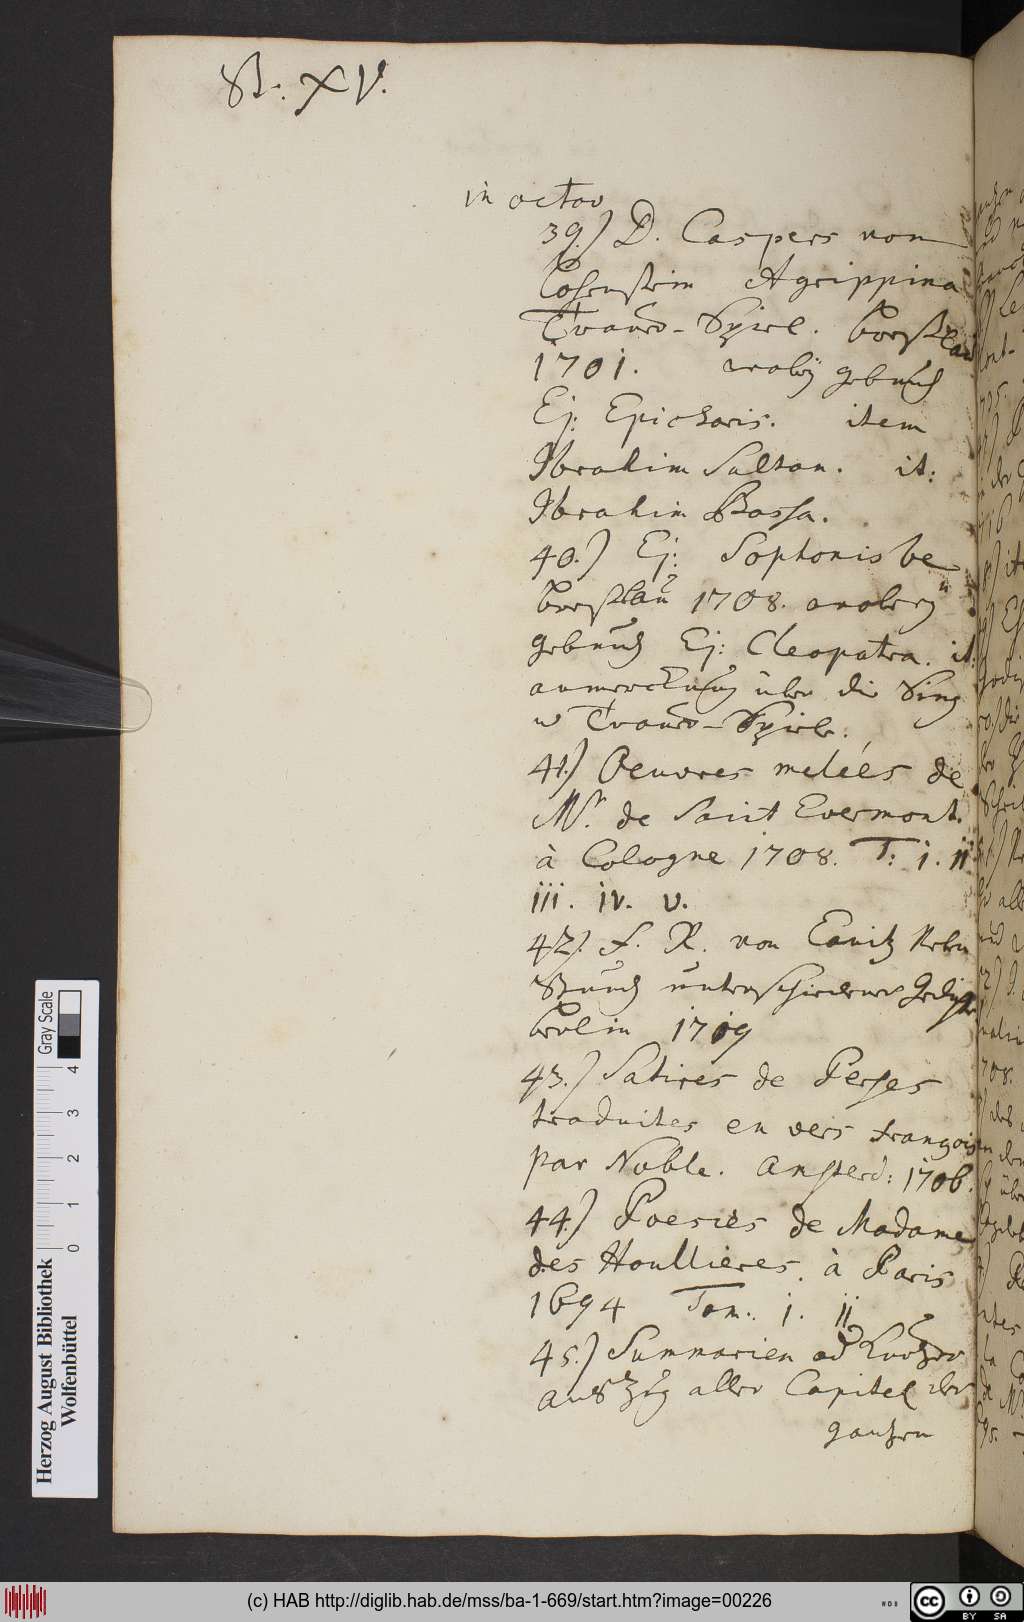 St. XV.
in octav
39.) D. Caspers von
Lohenstein Agrippina
Trauer-Spiel. Breßlau
1701. wobeÿ gebund
Ej: Epicharis. item
Ibrahim Sultan. it:
Ibrahim Bassa.
40.) Ej: Sophonisbe
Breßlau 1708. 
gebund Ej: Cleopatra. it:
anmerckung über die Sing
u Trauer-Spiele.
41.) Oeuvres meleés de
Mr. de Saint Evermont.
à Cologne 1708. T: i. ii
iii. iv. v.
42). F. R. von Canitz Neben
Stund unterschiedener Gedichte
Berlin 1709
43.) Satires de Perses
traduites en vers françois
par Noble. Amsterd: 1706.
44.) Poesies de Madame
des Houllieres. à Paris
1694 Tom. i. ii
45.) Summarien od Kurtzer
auszug aller Capitel der
gantzen
Herzog August Bibliothek
Wolfenbüttel
Gray Scale
0 1 2 3 4
(c) HAB http://diglib.hab.de/mss/ba-1-669/start.htm?image=00226
cc BY SA